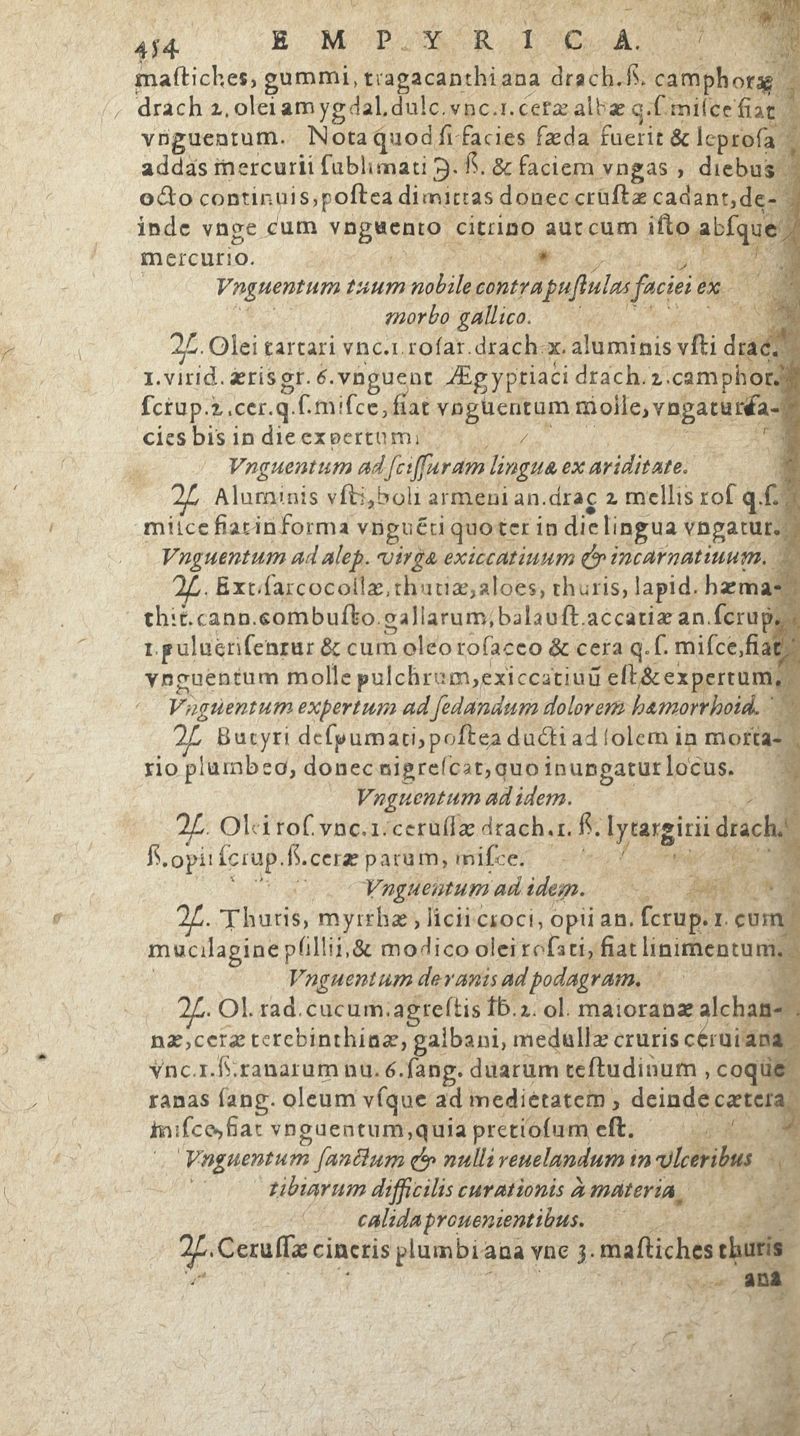 454 EMPYRICA.
maſtiches, gummi, tragacanthi ana drach.ß. camphoræ
drach 2. olei amygdal. dulc. vnc.1. ceræ albæ q.ſ. miſce fiat
vnguentum. Nota quod ſi facies fæda fuerit & leproſa
addas mercurii ſublimati ℈. ß. & faciem vngas, diebus
octo continuis, poſtea dimittas donec cruſtæ cadant, de-
inde vnge cum vnguento citrino aut cum iſto abſque
mercurio.
Vnguentum tuum nobile contra puſtulas faciei ex
morbo gallico.
℞. Olei tartari vnc.1. roſar. drach x. aluminis vſti drac.
1. virid. æris gr. 6. vnguent Ægyptiaci drach. 2. camphor.
ſcrup.2. cer. q.ſ. miſce, fiat vnguentum molle, vngatur fa-
cies bis in die expertum.
Vnguentum ad ſciſſuram linguæ ex ariditate.
℞ Aluminis vſti, boli armeni an. drac 2 mellis roſ q.ſ.
miſce fiat in forma vnguēti quo ter in die lingua vngatur.
Vnguentum ad alep. virgæ exiccatiuum & incarnatiuum.
℞. Ext. ſarcocollæ, thutiæ, aloes, thuris, lapid. hæma-
thit. cann. combuſto. gallarum, balauſt. accatiæ an. ſcrup.
1. pulueriſentur & cum oleo roſaceo & cera q.ſ. miſce, fiat
vnguentum molle pulchrum, exiccatiuū eſt & expertum.
Vnguentum expertum ad ſedandum dolorem hæmorrhoid.
℞ Butyri deſpumati, poſtea ducti ad ſolem in morta-
rio plumbeo, donec nigreſcat, quo inungatur locus.
Vnguentum ad idem.
℞. Olei roſ. vnc. 1. ceruſſæ drach. 1. ß. lytargirii drach.
ß. opii ſcrup. ß. ceræ parum, miſce.
Vnguentum ad idem.
℞. Thuris, myrrhæ, licii croci, opii an. ſcrup. 1. cum
mucilagine pſillii, & modico olei roſati, fiat linimentum.
Vnguentum de ranis ad podagram.
℞. Ol. rad. cucum. agreſtis ℔. 2. ol. maioranæ alchan-
næ, ceræ terebinthinæ, galbani, medullæ cruris cerui ana
vnc. 1. ß. ranarum nu. 6. ſang. duarum teſtudinum, coque
ranas ſang. oleum vſque ad medietatem, deinde cætera
miſce, fiat vnguentum, quia pretioſum eſt.
Vnguentum ſanctum & nulli reuelandum in vlceribus
tibiarum difficilis curationis à materia
calida prouenientibus.
℞. Ceruſſæ cineris plumbi ana vnc 3. maſtiches thuris
ana